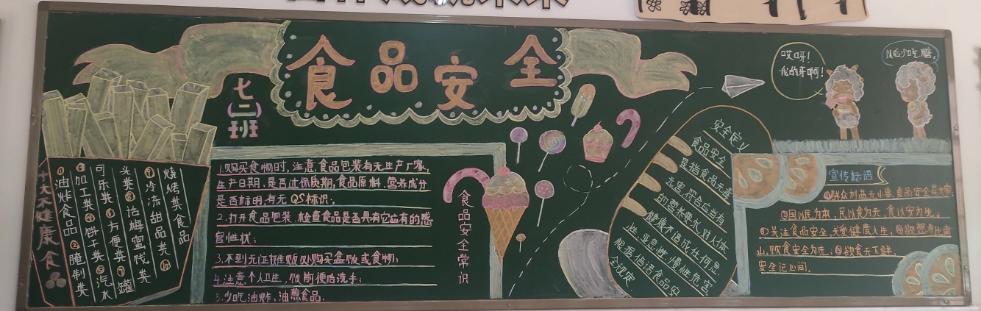 食品安全
七(二)班
哎呀!
我的牙啊!
十大不健康食品
①油炸食品②腌制类
③加工类④饼干类⑤汽水
可乐类⑥方便类⑦罐
头类⑧话梅蜜饯类
⑨冷冻甜品类⑩
烧烤类食品
1.购买食物时,注意食品包装有无生产厂家,
生产日期,是否过保质期,食品原料,营养成分
是否标明,有无QS标识,
2.打开食品包装,检查食品是否具有它应有的感
官性状;
3.不到无证摊贩处购买盒饭或食物,
4.注意个人卫生,饭前便后洗手;
5.少吃油炸、油煎食品.
食品安全常识
安全定义
食品安全
是指食品无毒
无害,符合应当有
的营养要求,对人体
健康不造成任何急
性、亚急性、慢性危害
安全规定
宣传标语
②国以民为本,民以食为天,食以安为先。
③关注食品安全,关爱健康人生。
安全记心间。